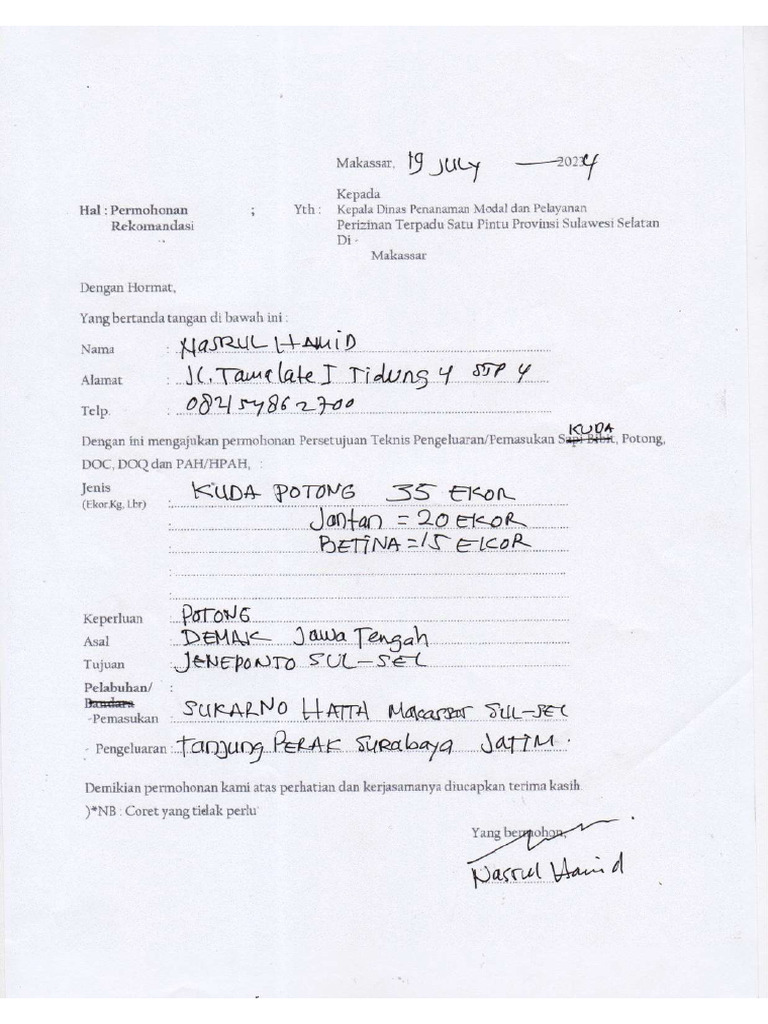 Makassar, 19 JULY 2024
Kepada
Hal : Permohonan ; Yth : Kepala Dinas Penanaman Modal dan Pelayanan
Rekomandasi Perizinan Terpadu Satu Pintu Provinsi Sulawesi Selatan
Di -
Makassar
Dengan Hormat,
Yang bertanda tangan di bawah ini :
Nama : NASRUL HAMID
Alamat : JL. Tamalate I Tidung 4 STP 4
Telp. : 082154862700
KUDA
Dengan ini mengajukan permohonan Persetujuan Teknis Pengeluaran/Pemasukan Sapi Bibit, Potong,
DOC, DOQ dan PAH/HPAH, :
Jenis : KUDA POTONG 35 EKOR
(Ekor,Kg, Lbr)
Jantan = 20 EKOR
BETINA = 15 EKOR
Keperluan : POTONG
Asal : DEMAK Jawa Tengah
Tujuan : JENEPONTO SUL-SEL
Pelabuhan/ :
Bandara
-Pemasukan : SUKARNO HATTA Makassar SUL-SEL
- Pengeluaran : Tanjung PERAK Surabaya JATIM.
Demikian permohonan kami atas perhatian dan kerjasamanya diucapkan terima kasih.
)*NB : Coret yang tidak perlu
Yang bermohon,
Nasrul Hamid